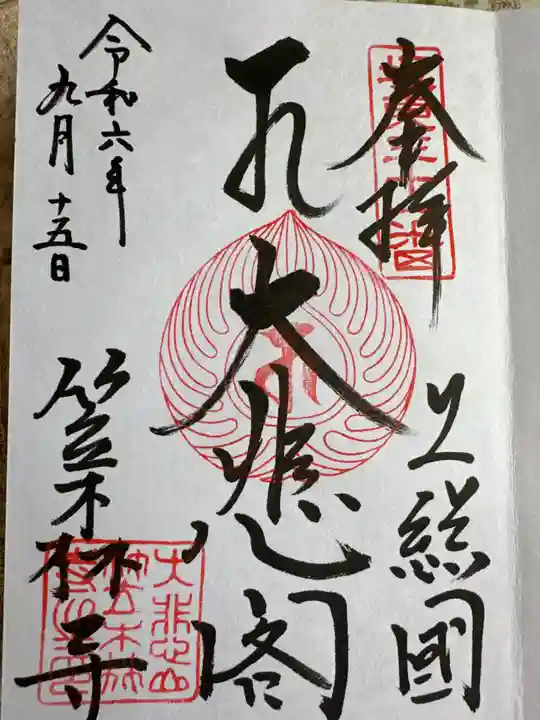 奉拝
上総國
大悲閣
令和六年
九月十五日
笠森寺
大悲山
笠森
寺之印